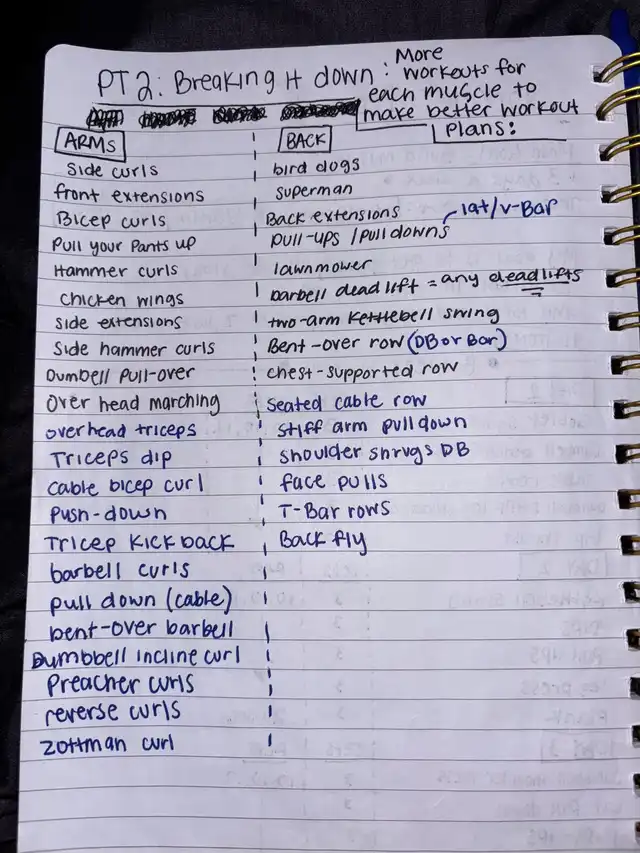 PT 2: Breaking it down:
More
workouts for
each muscle to
make better workout
plans!
ARMS
Side curls
front extensions
Bicep curls
Pull your pants up
Hammer curls
Chicken wings
Side extensions
Side hammer curls
Dumbell pull-over
Over head marching
overhead triceps
Triceps dip
cable bicep curl
push-down
Tricep kickback
barbell curls
pull down (cable)
bent-over barbell
Dumbbell incline curl
Preacher curls
reverse curls
zottman curl
BACK
bird dogs
superman
Back extensions
pull-ups /pull downs lat/v-Bar
lawnmower
barbell dead lift = any deadlifts
two-arm kettlebell swing
Bent-over row (DB or Bar)
chest-supported row
Seated cable row
Stiff arm pull down
shoulder shrugs DB
face pulls
T-Bar rows
Back fly